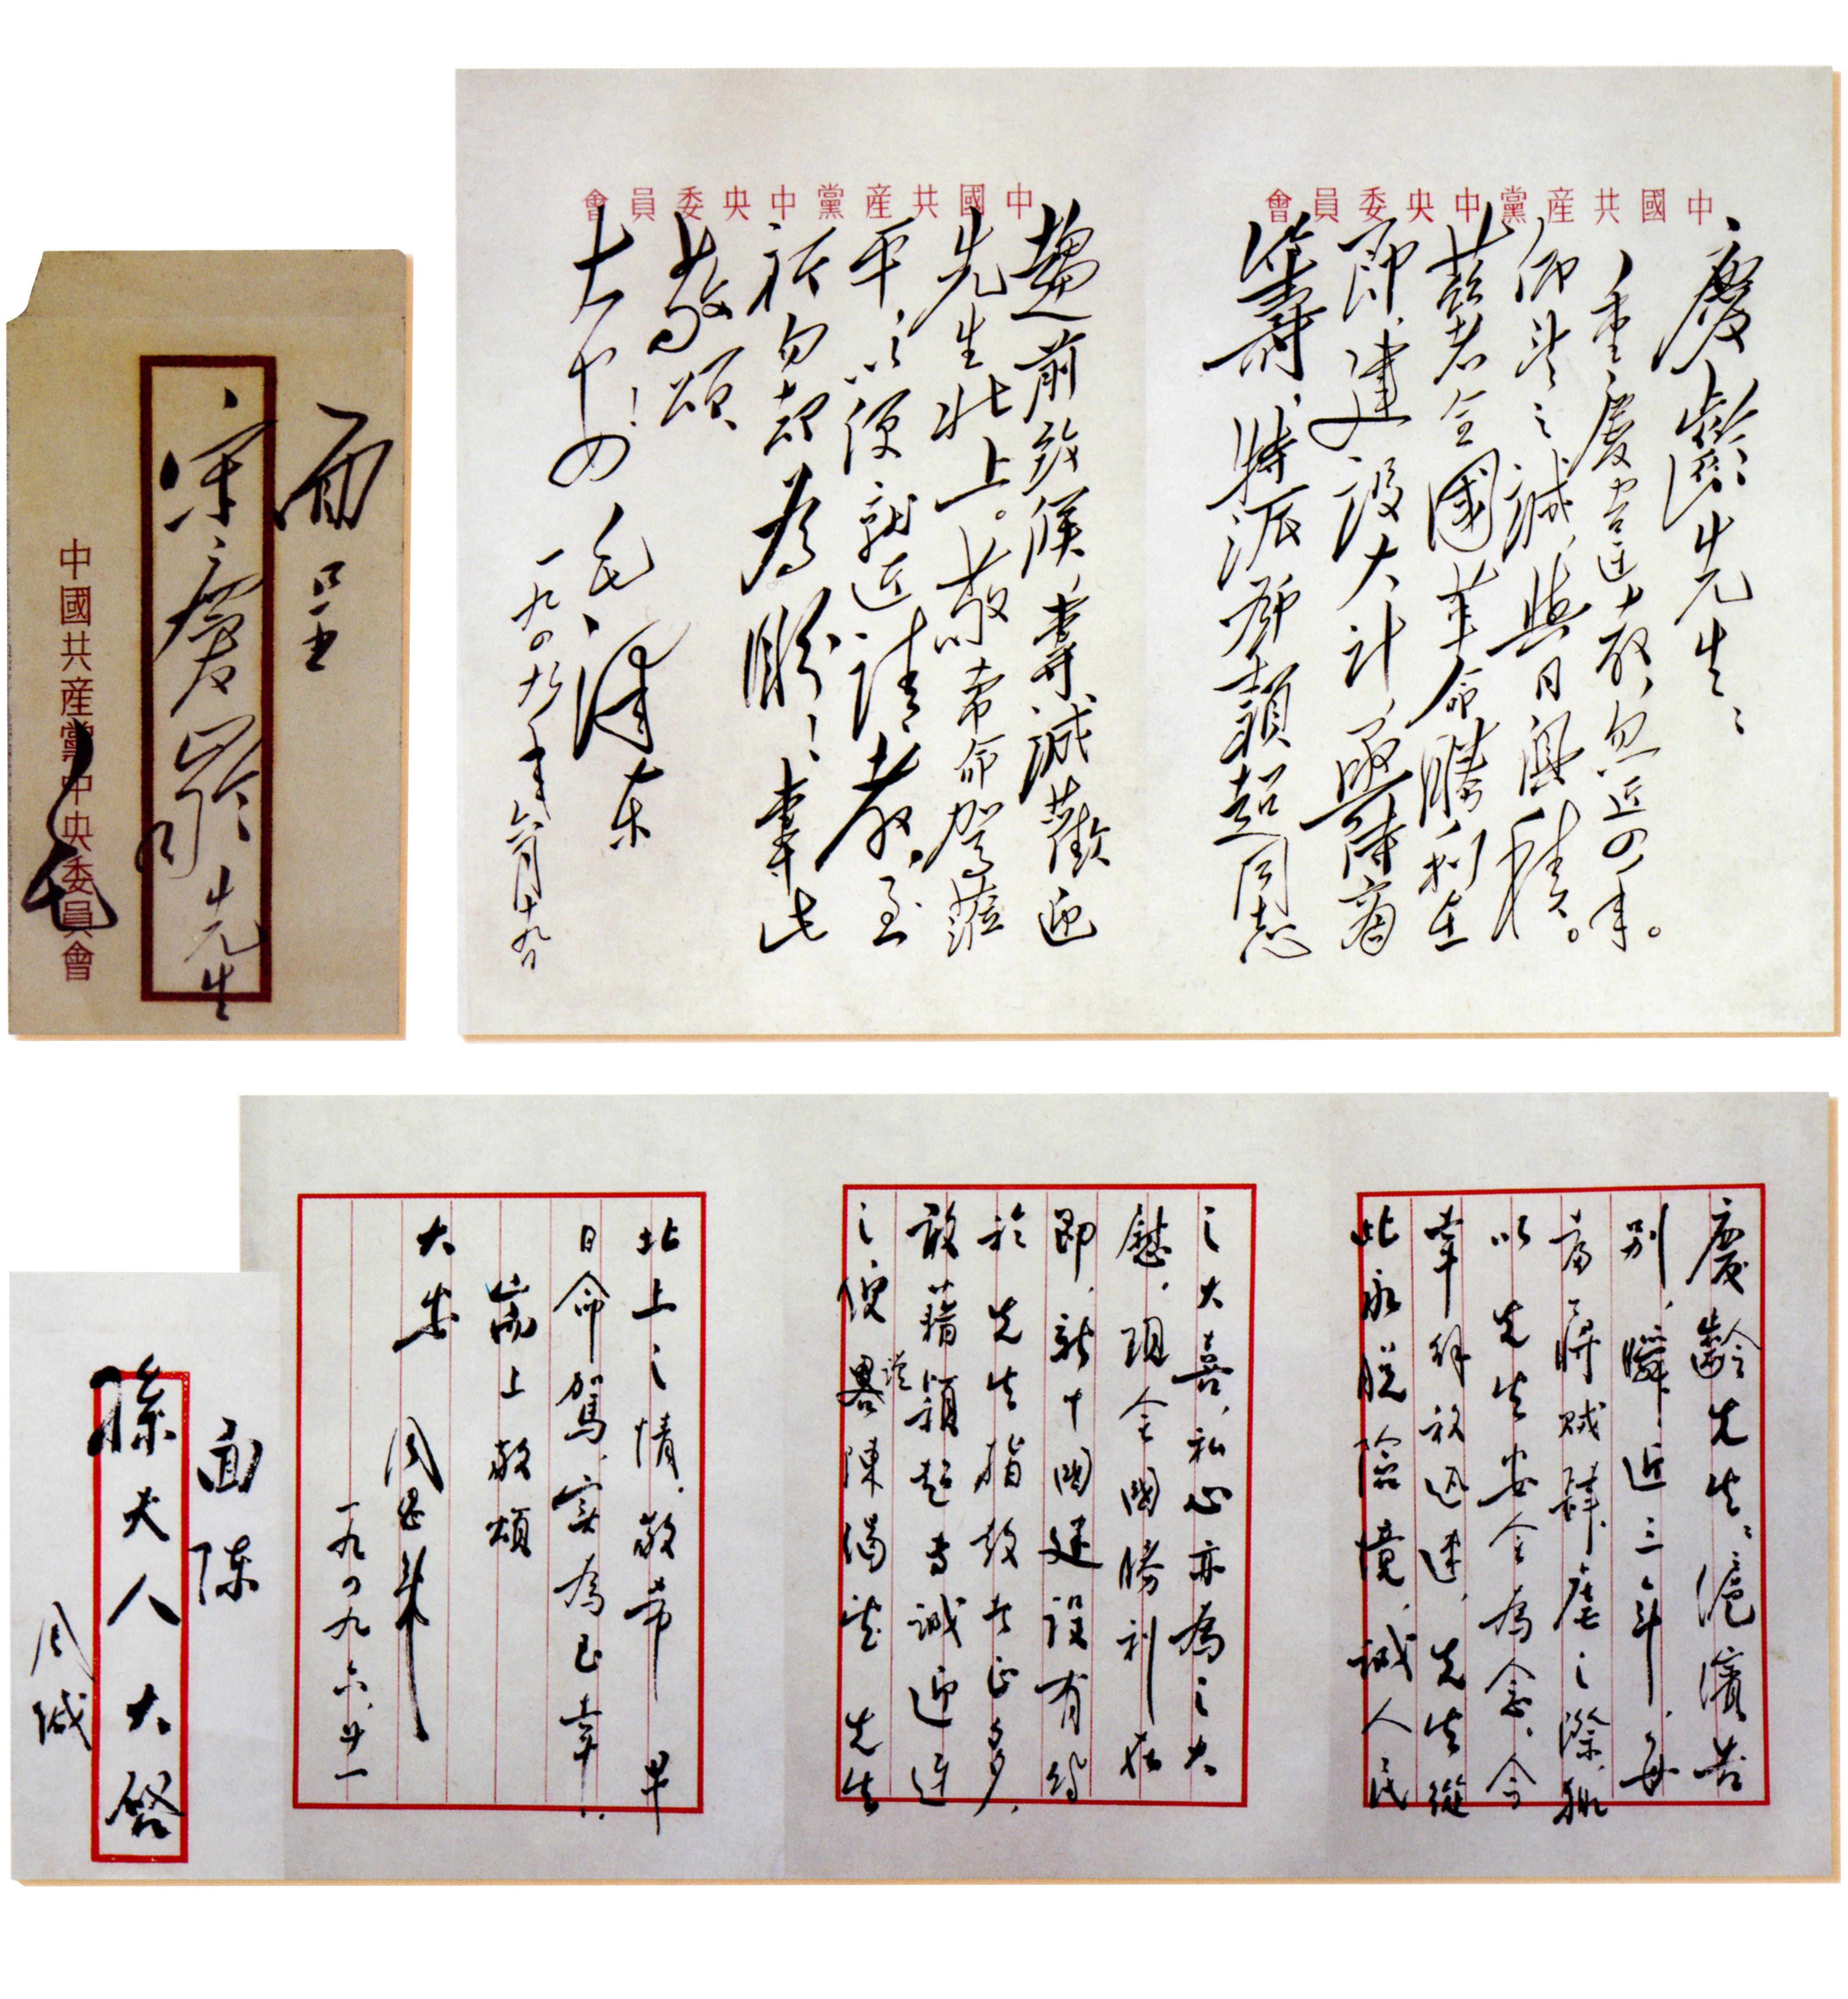 面呈
宋慶齡先生
中國共産黨中央委員會
毛
中國共産黨中央委員會
慶齡先生：
重慶違教，忽近四年。
仰望之誠，與日俱積。
茲者全國革命勝利在
即，建設大計，亟待商
籌，特派鄧穎超同志
中國共産黨中央委員會
趨前致候，專誠歡迎
先生北上。敬希命駕蒞
平，以便就近請教，至
祈勿却為盼！專此
敬頌
大安！
毛澤东
一九四九年六月十九日
面陳
孫夫人大啓
周緘
慶齡先生：滬濱告
别，瞬近三年，每
當蔣賊肆虐之際，輒
以先生安全為念。今
幸解放迅速，先生從
此永脱險境，誠人民
之大喜，私心亦為之大
慰。現全國勝利在
即，新中國建設有待
於先生指教者正多，
敢藉穎超專誠迎迓
之便，謹畧陳渴望先生
北上之情。敬希早
日命駕，實為至幸！
耑上敬頌
大安
周恩来
一九四九.六.廿一